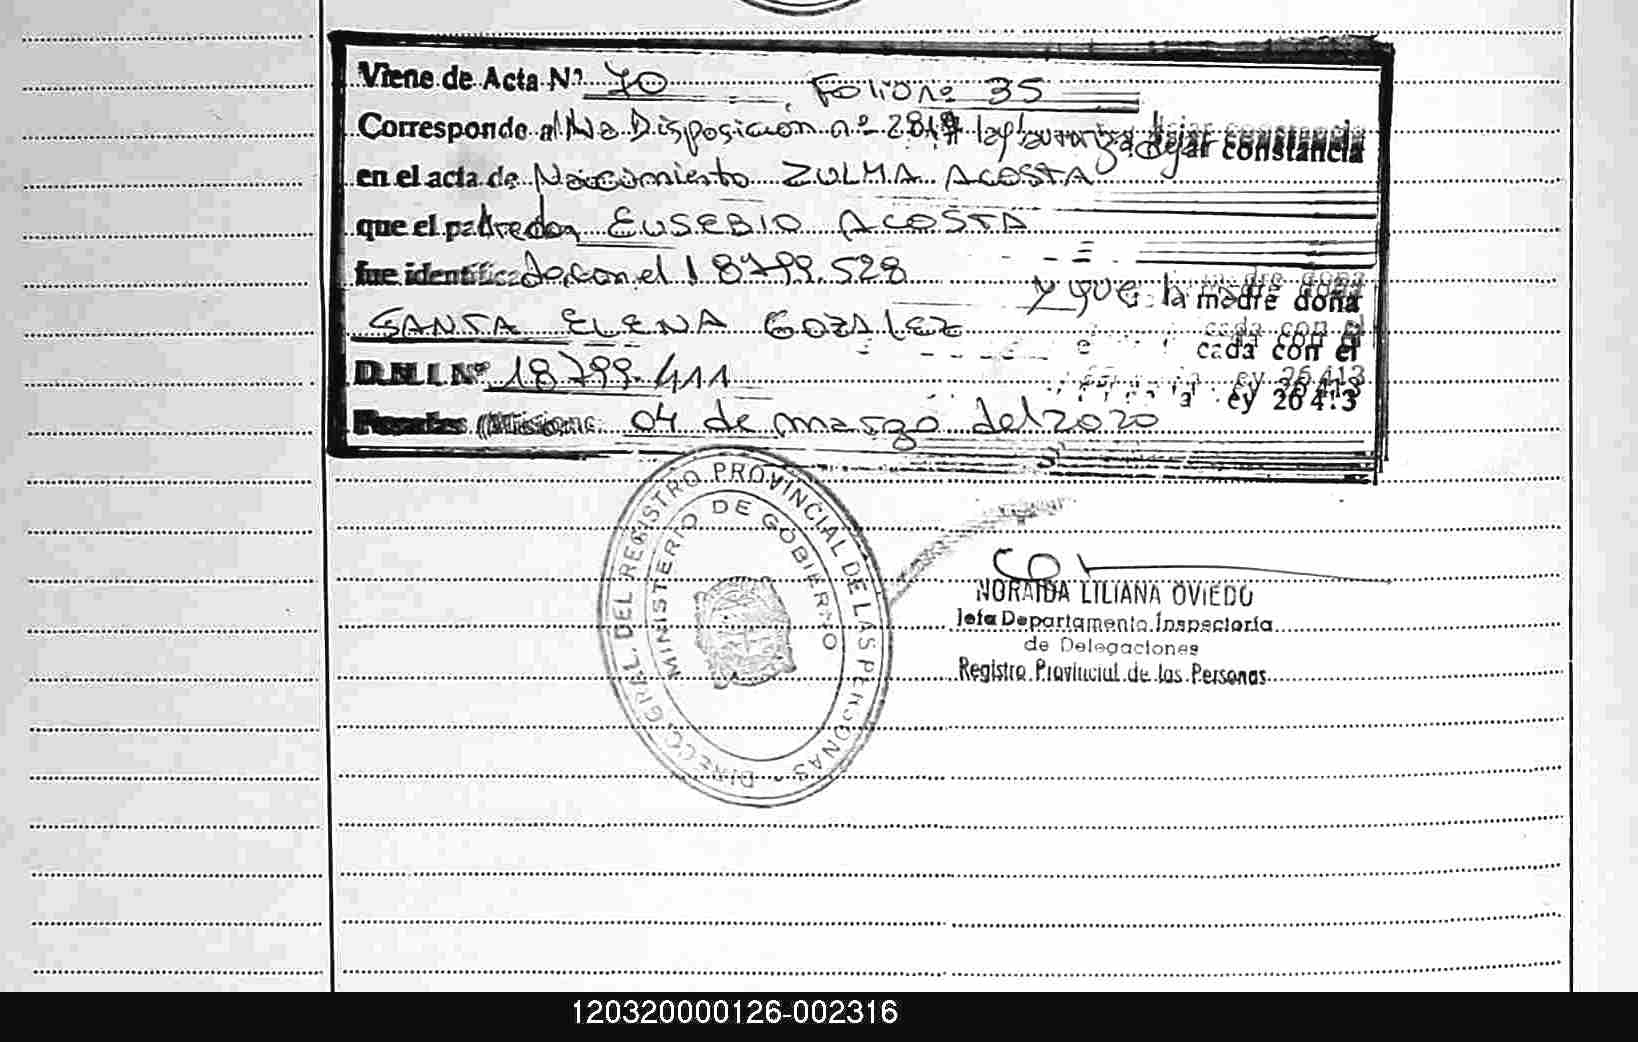 Viene de Acta Nº 70, Folio nº 35
Corresponde al Na Disposición nº 2849 dejar constancia
en el acta de Nacimiento ZULMA ACOSTA
que el padre don EUSEBIO ACOSTA
fue identificado con el 18799.528 y que la madre doña
SANTA ELENA GOZALEZ cada con el
D.N.I. Nº 18799.411 ey 26413
Posadas (Misiones 04 de marzo del 2020
DIRECC. GRAL. DEL REGISTRO PROVINCIAL DE LAS PERSONAS
MINISTERIO DE GOBIERNO
NORAIDA LILIANA OVIEDO
Jefa Departamento Inspectoría
de Delegaciones
Registro Provincial de las Personas
120320000126-002316